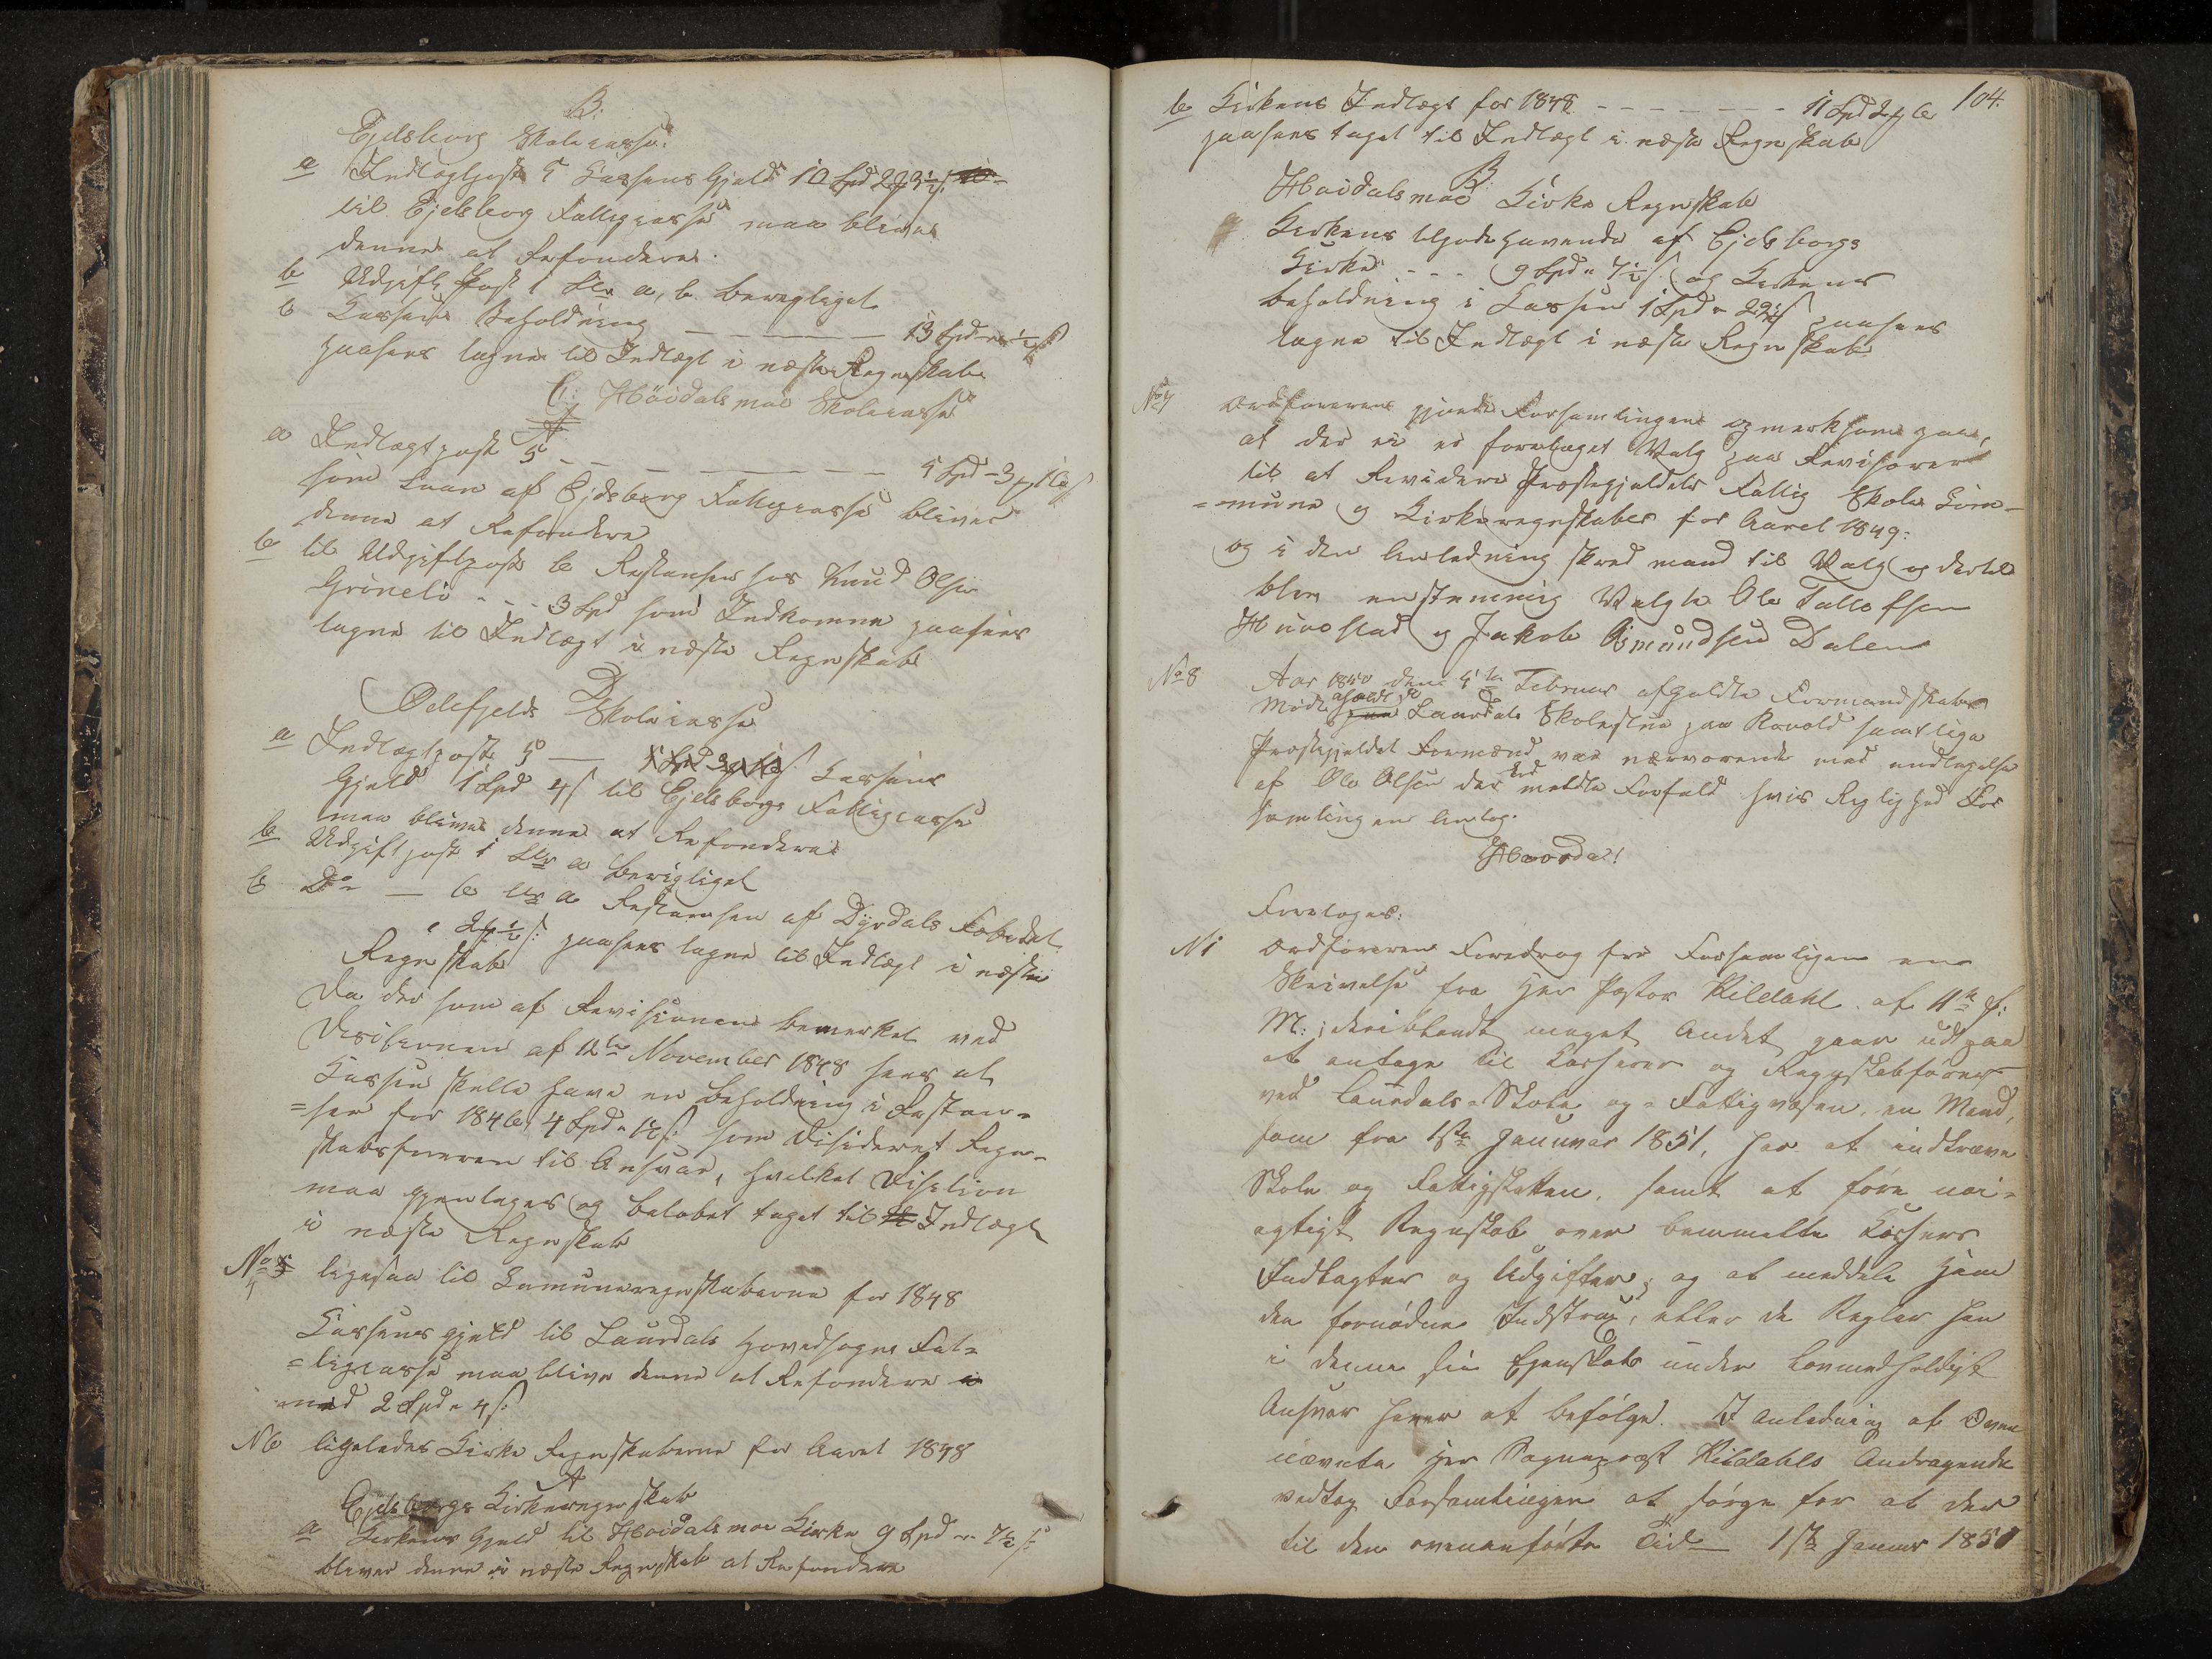 B:
Ejdsborg Skolecasse:
a Indtægtpost 5 Cassens Gjeld 10 Spd 2 ƒ 9½ s:
til Ejdsborg Fattigcasse maa blive
denne at Refondere.
b Udgift Post 1 Ltr a, b. berigtiget
c Cassens Beholdning — — — — 13 Spd
paasees tagne til Indtægt i næste Regnskab
C: Höidalsmoe Skolecasse
a Indtægtpost 5 — — — — — — 5 Spd - 3
som Laan af Ejdsborg Fattigcasse bliver
denne at Refondere
b til Udgiftpost b Restansen hos Knud Olsen
Gröneli - - - 3 Spd som Indkomne paasees
tagne til Indtægt i næste Regnskab
D
Ødefjelds Skolecasse
a Indtægtpost 5 — Cassens
Gjeld 1 Spd 4 s til Ejdsborgs Fattigcasse
maa blive denne at Refondere
b Udgiftpost 1 Ltr a Berigtiget
c Do — b Ltr a Restansen af Dyrdals
paasees tagne til Indtægt i næste
Regnskab
Da der som af Revisionen bemerket ved
Desisionen af 12te November 1848 sees at
Cassen skulle have en beholdning i Restan-
=sen for 1846, 4 Spd - 12 s: som Desideret Regn-
skabsföreren til Ansvar, hvilket Desition
maa gjentages og beløbet taget til Indtægt
i næste Regnskab
No 5 ligesaa til Comuneregnskaberne for 1848
Cassens gjeld til Laurdals Hovedsogns Fat=
=tigcasse maa blive denne at Refondere
med 2 Spd - 4 s:
N6 ligeledes Kirke Regnskaberne for Aaret 1848
A
Ejdsborgs Kirkeregnskab
a Kirkens Gjeld til Höidalsmoe Kirke 9 Spd - 7½ s:
bliver denne i næste Regnskab at Refondere
104.
b Kirkens Indtægt for 1848 - - - - - - - 11 Spd 2
paasees taget til Indtægt i næste Regnskab
B:
Höidalsmoe Kirke Regnskab
a Kirkens tilgodehavende af Ejdsborgs
Kirke - - - 9 Spd " 7½ s: og Kirkens
beholdning i Cassen 1 Spd " 22½ s paasees
tagne til Indtægt i næste Regnskab
No 7 Ordføreren gjorde Forsamlingen opmerksom paa,
at der ei er foretaget Valg paa Revisorer
til at Revidere Præstegjeldets Fattig Skole Com-
=mune og Kirkeregnskaber for Aaret 1849:
og i den Anledning skred mand til Valg og dertil
blev enstemmig Valgte Ole Tallefsen
Huvestad og Jakob Asmundsen Dalen
No 8 Aar 1850 den 4de Februar afholdte Formandskabet
Møde afholdt paa Laurdals Skolestue paa Rovold samtlige
Præstegjeldet Formænd var nærværende med undtagelse
af Ole Olsen der meldte Forfald hvis Rigtighed For
samlingen antog.
Hvorda!
Foretoges:
N1 Ordføreren Foredrog for Forsamligen en
Skrivelse fra Her Pastor Kildahl af 11te f:
M:; deriblandt meget Andet gaar ud paa
at antage til Kasserer og Regnskabsfører
ved Laurdals-Skole og -Fattigvæsen, en Mand,
som fra 1ste Januar 1851, har at indkræve
Skole og Fattigskatten, samt at føre nøi-
agtigt Regnskab over bemeldte Kassers
Indtægter og Udgifter; og at meddele ham
den fornødne Instrux, eller de Regler han
i denne sin Egenskab under lovmedholdigt
Ansvar haver at befølge. I Anledning af Oven
nævnte Her Sognepræst Kildahls Andragende
vedtog Forsamlingen at sørge for at der
til den ovenanførte Tid — 1ste Januar 1851